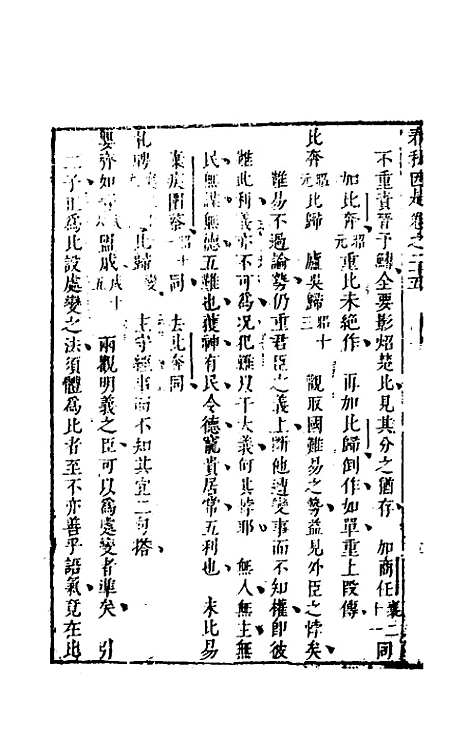 春秋因是卷之二十五
不重責晉予鱄全要影炤楚比見其分之猶存 加商任襄二十一同
如比奔昭元重比未絶作 再加比歸倒作如單重上段傳
比奔昭元比歸 廬吳歸昭十三 觀取國難易之勢益見外臣之悖矣
難易不過論勢仍重君臣之義上斷他遭變事而不知權即彼
雖此利義亦不可為况犯難以干大義何其悖耶 無人無主無
民無謀無德五難也獲神有民令德寵貴居常五利也 未比易
棄疾圍蔡昭十一同 去比奔同
札聘 比歸 主守經事而不知其宜二句搭
嬰齊如 盟戚成十五 兩觀明義之臣可以為處變者準矣 引
二子正為比設處變之法須體為比者至不亦善乎語氣竟在比